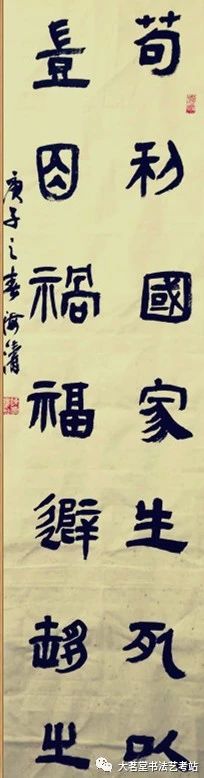 苟利國家生死以
豈因禍福避趨之
庚子之春海清
大茗堂书法艺考站